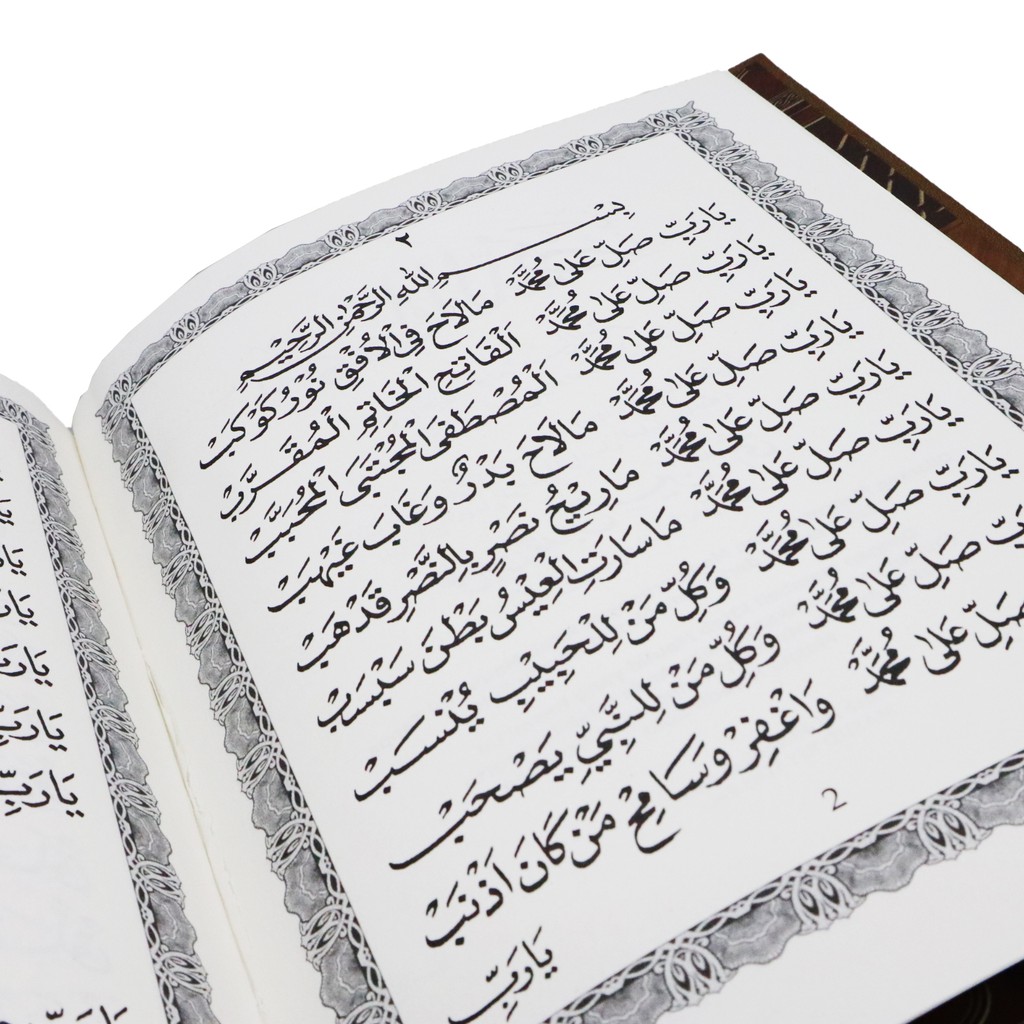 ٢
بِسْمِ اللهِ الرَّحْمٰنِ الرَّحِيْمِ
يَارَبِّ صَلِّ عَلٰى مُحَمَّدْ مَالَاحَ فِى الْاُفُقِ نُوْرُ كَوْكَبْ
يَارَبِّ صَلِّ عَلٰى مُحَمَّدْ اَلْفَاتِحِ الْخَاتِمِ الْمُقَرَّبْ
يَارَبِّ صَلِّ عَلٰى مُحَمَّدْ اَلْمُصْطَفَى الْمُجْتَبَى الْمُحَبَّبْ
يَارَبِّ صَلِّ عَلٰى مُحَمَّدْ مَالَاحَ بَدْرٌ وَغَابَ غَيْهَبْ
يَارَبِّ صَلِّ عَلٰى مُحَمَّدْ مَارِيْحُ نَصْرٍ بِالنَّصْرِ قَدْهَبْ
يَارَبِّ صَلِّ عَلٰى مُحَمَّدْ مَاسَارَتِ الْعِيْسُ بَطْنَ سَبْسَبْ
يَارَبِّ صَلِّ عَلٰى مُحَمَّدْ وَكُلِّ مَنْ لِلْحَبِيْبِ يُنْسَبْ
صَلِّ عَلٰى مُحَمَّدْ وَكُلِّ مَنْ لِلنَّبِيِّ يَصْحَبْ
صَلِّ عَلٰى مُحَمَّدْ وَاغْفِرْ وَسَامِحْ مَنْ كَانَ اَذْنَبْ
يَارَبِّ
2